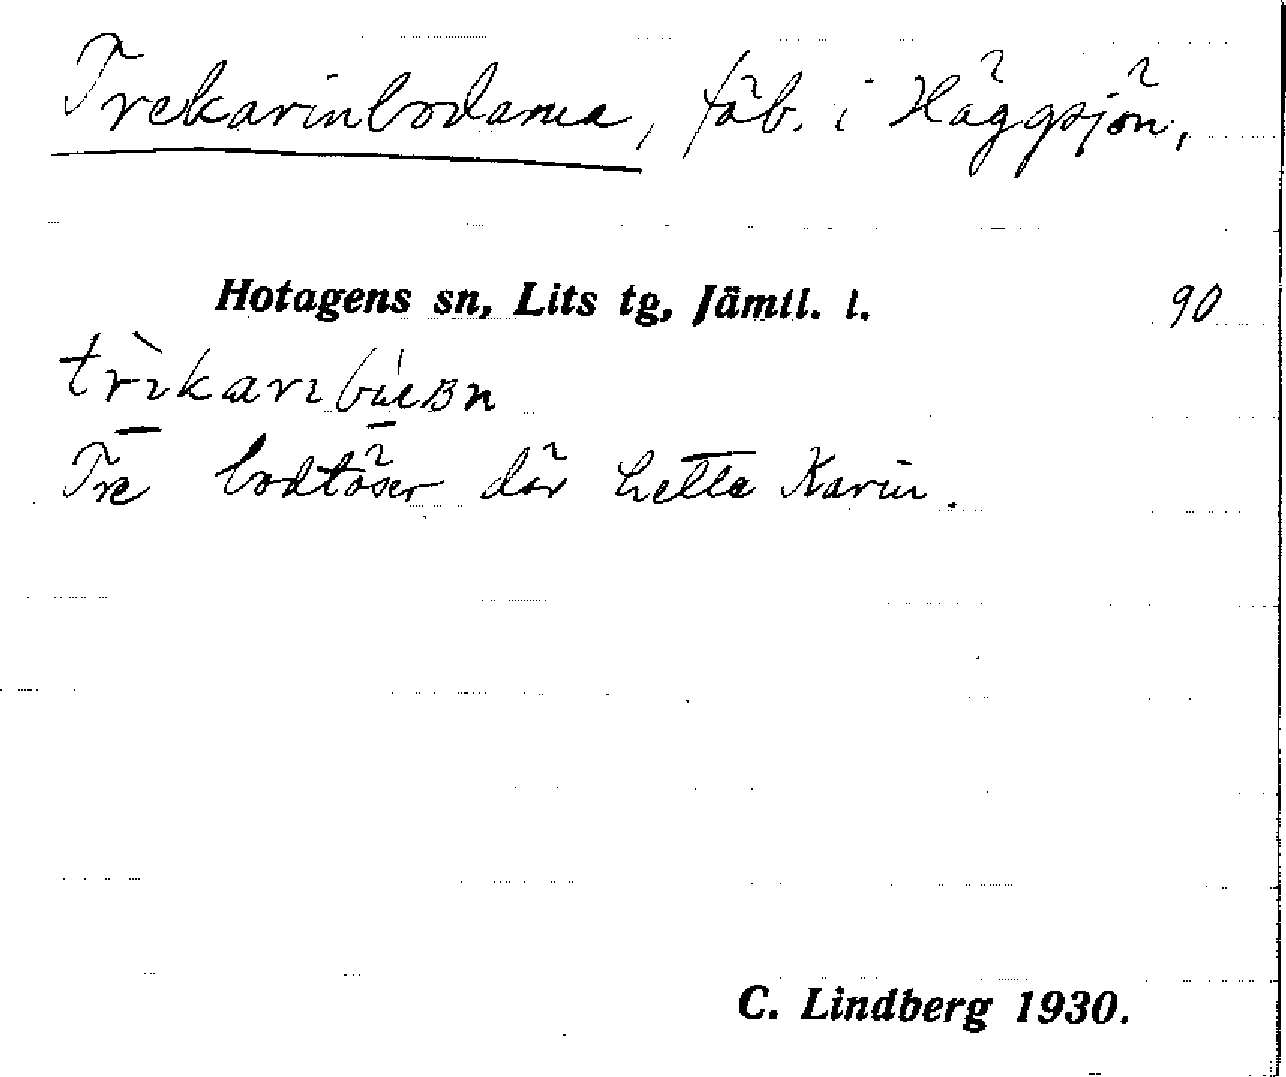 Trekarinbodarna, fäb. i Häggsjön,
Hotagens sn, Lits tg, Jämtl. l. 90
Tre bodtöser där hette Karin.
C. Lindberg 1930.